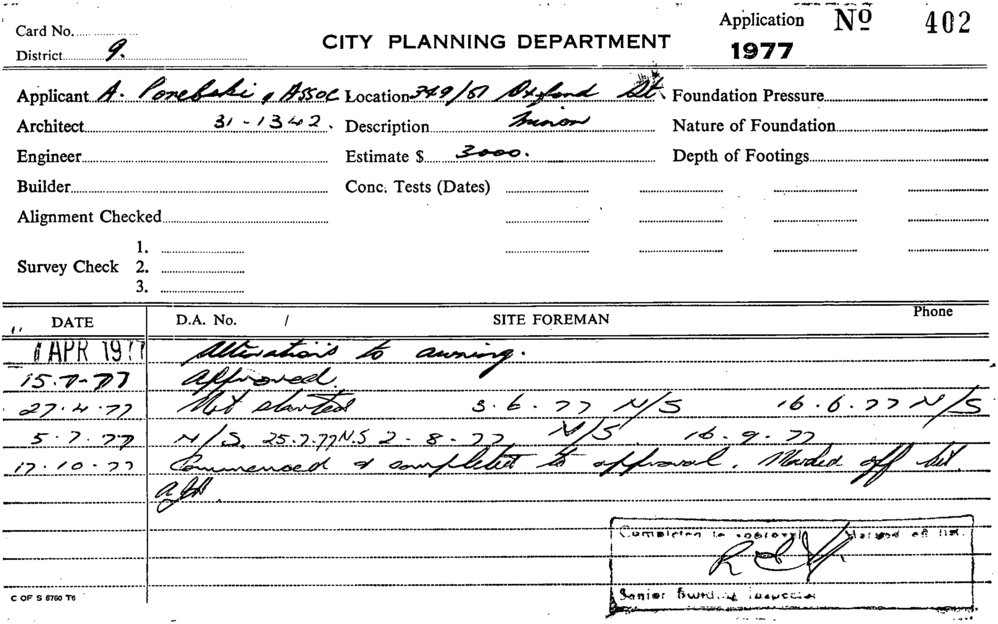 Card No.
Application No 402
CITY PLANNING DEPARTMENT
District 9.
1977
Applicant A. Porebski & Assoc Location 349/51 Oxford St. Foundation Pressure
Architect 31-1342. Description minor Nature of Foundation
Engineer Estimate $ 3000. Depth of Footings
Builder Conc. Tests (Dates)
Alignment Checked
1.
Survey Check 2.
3.
DATE D.A. No. / SITE FOREMAN Phone
APR 1977 Alterations to awning.
15.7-77 Approved.
27.4.77 Not started 3.6.77 N/S 16.6.77 N/S
5.7.77 N/S. 25.7.77 N.S 2-8-77. N/S. 16.9.77
17.10.77 Commenced & completed to approval. Marked off list.
Completed to approval Marked off list.
Senior Building Inspector
C OF S 6760 T6